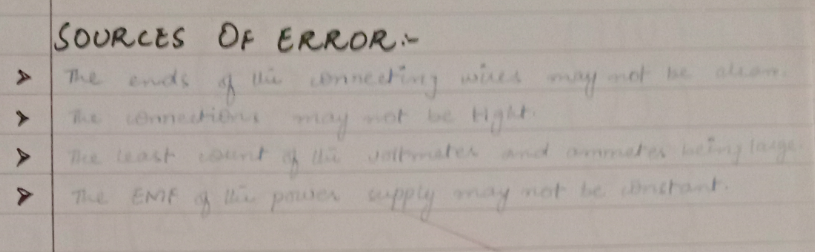 SOURCES OF ERROR:-
➤ The ends of the connecting wires may not be clean.
➤ The connections may not be tight.
➤ The least count of the voltmeter and ammeter being large.
➤ The EMF of the power supply may not be constant.